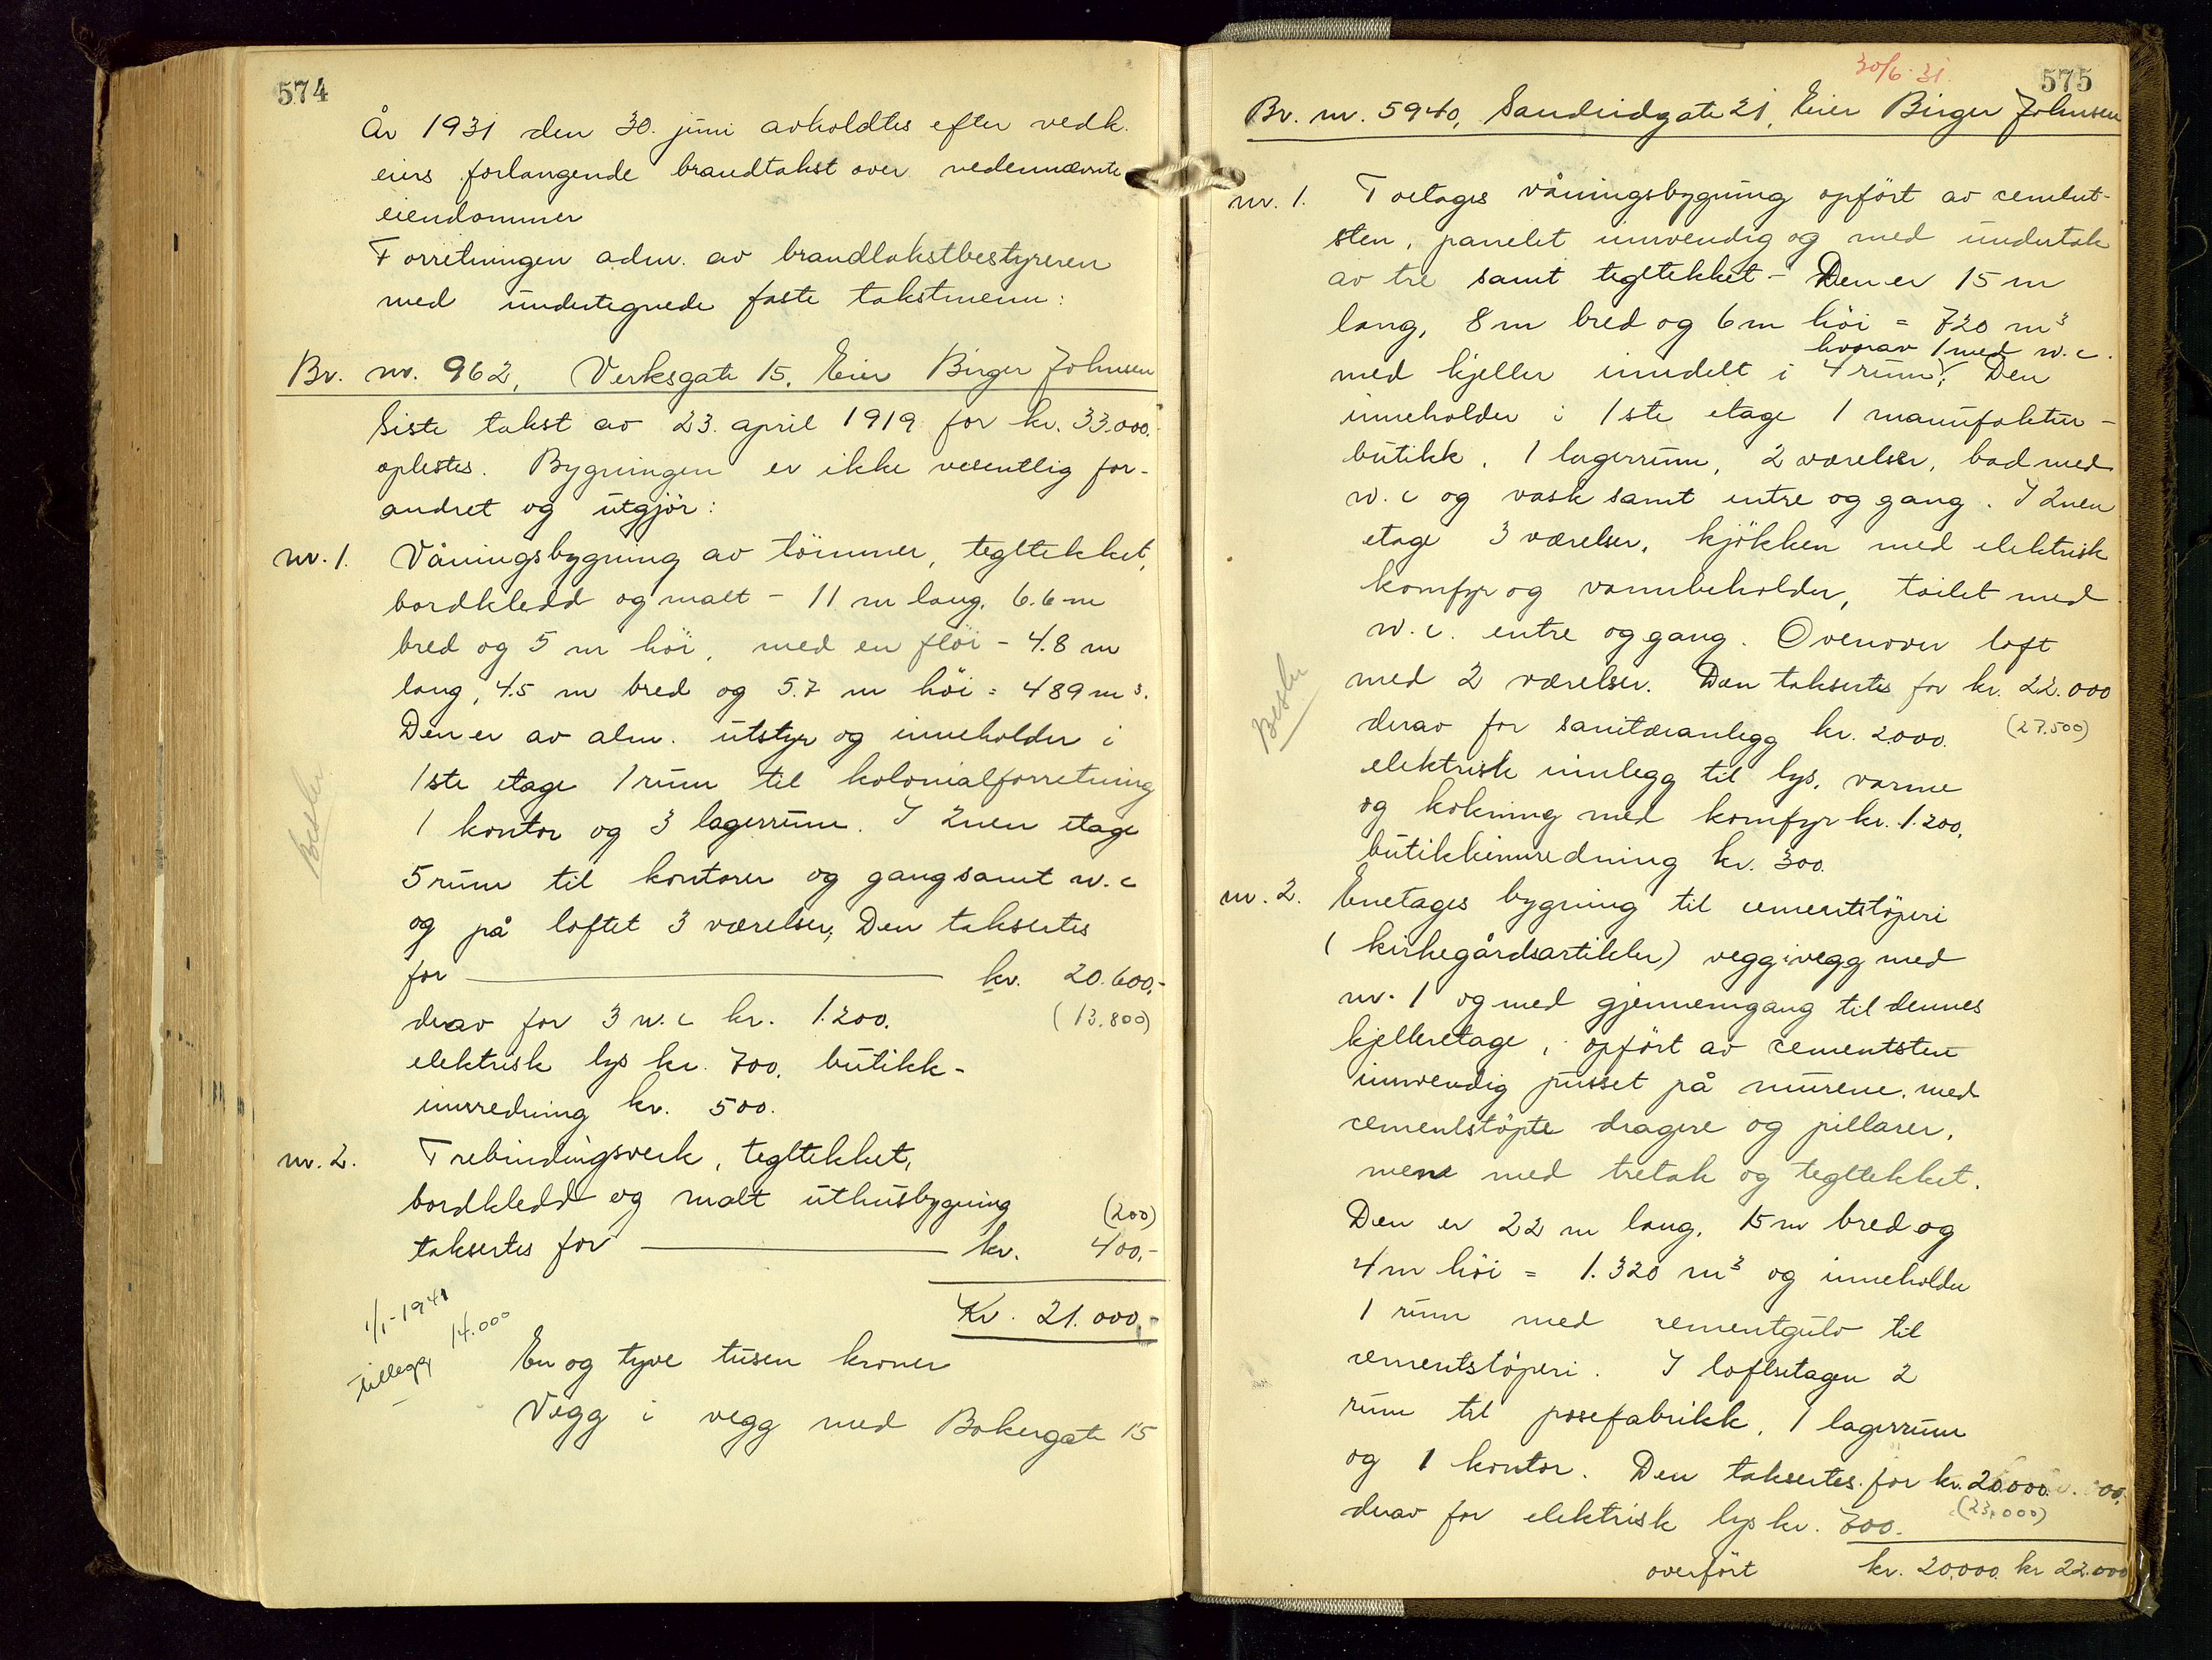 574
År 1931 den 30. juni avholdtes efter vedk.
eiers forlangende brandtakst over nedennævnte
eiendommer
Forretningen adm. av brandtakstbestyreren
med undertegnede faste takstmenn:
Br. nr. 962, Verksgate 15, Eier Birger Johnsen
Siste takst av 23. april 1919 for kr. 33.000.-
oplestes. Bygningen er ikke vesentlig for-
andret og utgjör:
nr. 1. Våningsbygning av tömmer, tegltekket,
bordkledd og malt - 11 m lang, 6.6 m
bred og 5 m höi, med en flöi - 4.8 m
lang, 4.5 m bred og 5.7 m höi = 489 m³.
Den er av alm. utstyr og inneholder i
1ste etage 1 rum til kolonialforretning
1 kontor og 3 lagerrum. I 2nen etage
5 rum til kontorer og gang samt w.c
og på loftet 3 værelser, Den taksertes
for kr. 20.600.-
derav for 3 w.c kr. 1.200. (13.800)
elektrisk lys kr. 700. butikk-
innredning kr. 500.
nr. 2. Trebindingsverk, tegltekket,
bordkledd og malt uthusbygning (200)
taksertes for kr. 400.-
Kr. 21.000.-
1/1-1941
tillegg 14.000
En og tyve tusen kroner
Vegg i vegg med Bakergate 15
30/6 31.
575
Br. nr. 5940, Sandvidgate 21, Eier Birger Johnsen
nr. 1. Toetages våningsbygning opfört av cement-
sten, panelet innvendig og med undertak
av tre samt tegltekket - Den er 15 m
lang, 8 m bred og 6 m höi = 720 m³
hvorav 1 med w.c.
med kjeller inndelt i 4 rum, Den
inneholder i 1ste etage 1 manufaktur-
butikk, 1 lagerrum, 2 værelser, bad med
w.c og vask samt entre og gang. I 2nen
etage 3 værelser, kjökken med elektrisk
komfyr og vannbeholder, toilet med
w.c. entre og gang. Ovenover loft
med 2 værelser. Den taksertes for kr. 22.000
derav for sanitæranlegg kr. 2.000. (27.500)
elektrisk innlegg til lys, varme
og kokning med komfyr kr. 1.200,
butikkinnredning kr. 300.
nr. 2. Enetages bygning til cementstöperi
(kirkegårdsartikler) vegg i vegg med
nr. 1 og med gjennemgang til dennes
kjelleretage, opfört av cementsten
innvendig pusset på murene, med
cementstöpte dragere og pillarer,
mens med tretak og tegltekket.
Den er 22 m lang, 15 m bred og
4 m höi = 1.320 m³ og inneholder
1 rum med cementgulv til
cementstöperi. I loftsetagen 2
rum til posefabrikk, 1 lagerrum
og 1 kontor. Den taksertes for kr. 20.000.
derav for elektrisk lys kr. 700. (23.000)
overfört kr. 20.000. kr 22.000